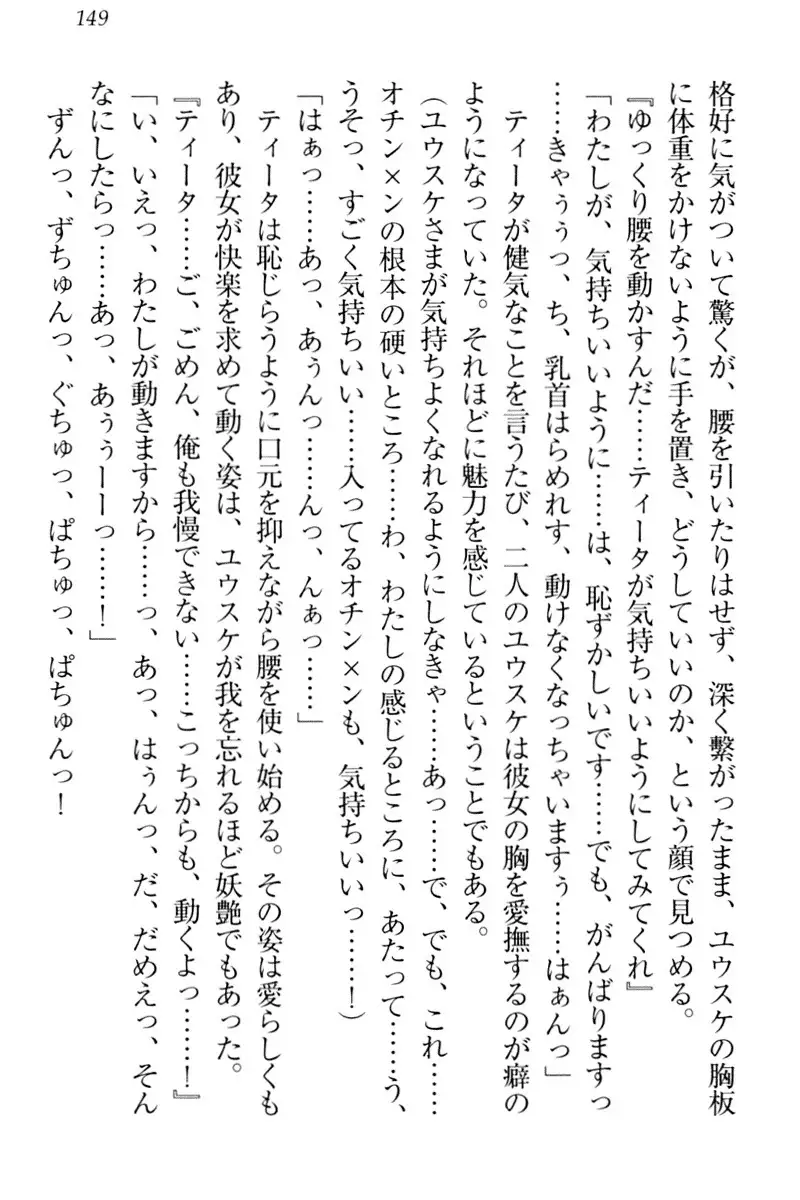 149
格好に気がついて驚くが、腰を引いたりはせず、深く繋がったまま、ユウスケの胸板
に体重をかけないように手を置き、どうしていいのか、という顔で見つめる。
『ゆっくり腰を動かすんだ……ティータが気持ちいいようにしてみてくれ』
「わたしが、気持ちいいように……は、恥ずかしいです……でも、がんばりますっ
……きゃぅぅっ、ち、乳首はらめれす、動けなくなっちゃいますぅ……はぁんっ」
ティータが健気なことを言うたび、二人のユウスケは彼女の胸を愛撫するのが癖の
ようになっていた。それほどに魅力を感じているということでもある。
(ユウスケさまが気持ちよくなれるようにしなきゃ……あっ……で、でも、これ……
オチン×ンの根本の硬いところ……わ、わたしの感じるところに、あたって……う、
うそっ、すごく気持ちいい……入ってるオチン×ンも、気持ちいいっ……!)
「はぁっ……あっ、あぅんっ……んっ、んぁっ……」
ティータは恥じらうように口元を抑えながら腰を使い始める。その姿は愛らしくも
あり、彼女が快楽を求めて動く姿は、ユウスケが我を忘れるほど妖艶でもあった。
『ティータ……ご、ごめん、俺も我慢できない……こっちからも、動くよっ……!』
「い、いえっ、わたしが動きますから……っ、あっ、はぅんっ、だ、だめえっ、そん
なにしたらっ……あっ、あぅぅーーっ……!」
ずんっ、ずちゅんっ、ぐちゅっ、ぱちゅっ、ぱちゅんっ!